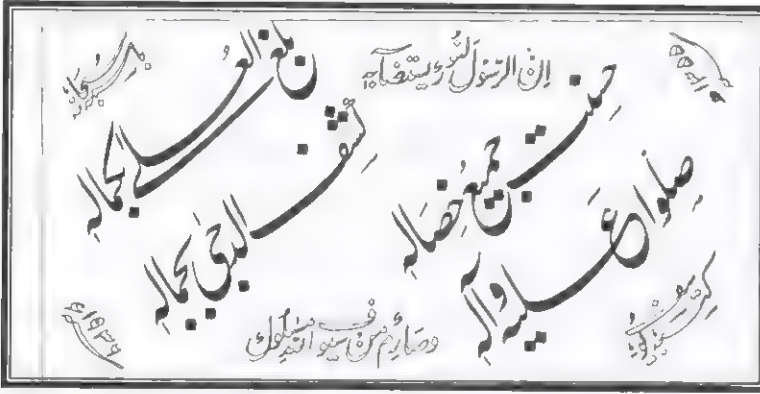 باسمه سبحانه
ان الرسول لنور يستضآء به
بلغ العلى بكماله
كشف الدجى بجماله
حسنت جميع خصاله
صلوا عليه وآله
وصارم من سيوف الله مسلول
١٩٣٦ء